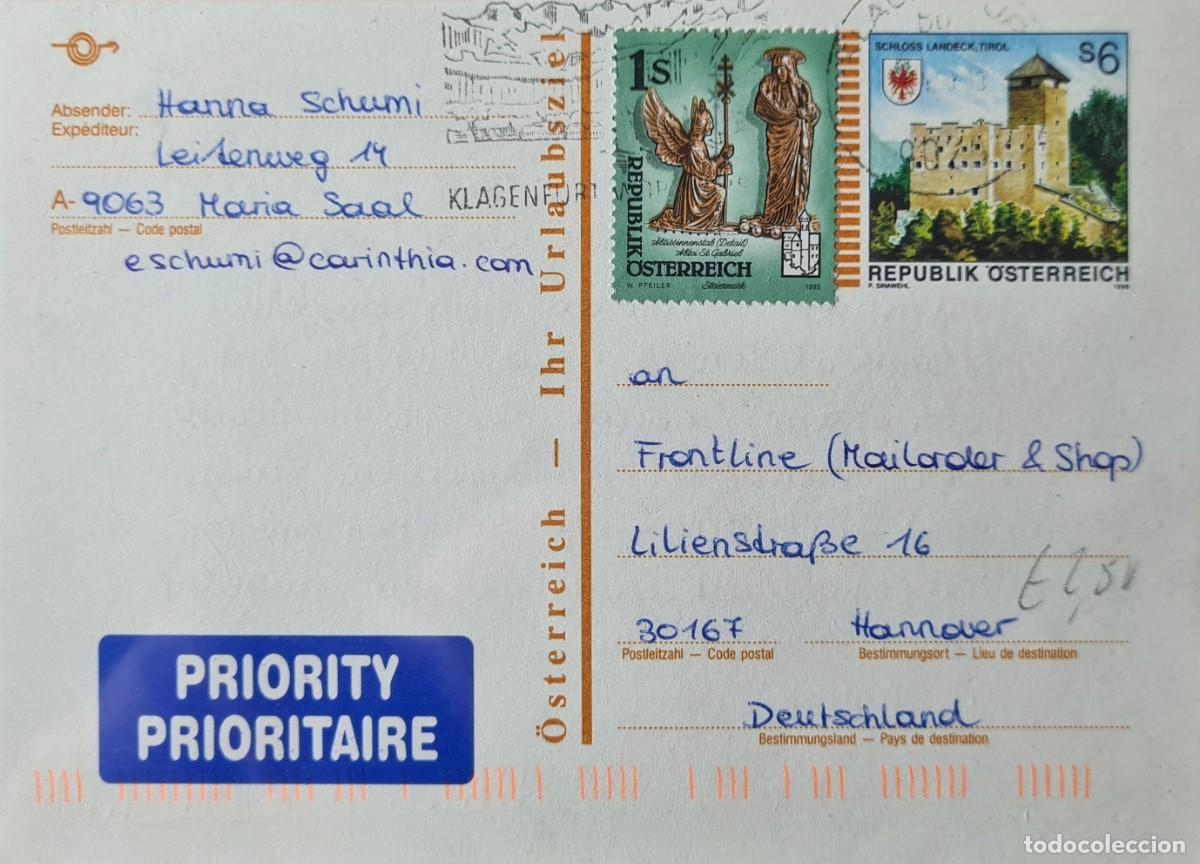 Absender: Hanna Schumi
Expéditeur:
Leitenweg 14
A-9063 Maria Saal
Postleitzahl — Code postal
eschumi@carinthia.com
KLAGENFURT
Österreich — Ihr Urlaubsziel
1S
REPUBLIK
ÖSTERREICH
Altissinnenstab (Detail)
Abtei St. Gabriel
Steiermark
W. PFEILER
1995
SCHLOSS LANDECK, TIROL
S6
REPUBLIK ÖSTERREICH
P. SINAWEHL
1998
an
Frontline (Mailorder & Shop)
Lilienstraße 16
30167 Hannover
Postleitzahl — Code postal
Bestimmungsort — Lieu de destination
Deutschland
Bestimmungsland — Pays de destination
PRIORITY
PRIORITAIRE
todocoleccion